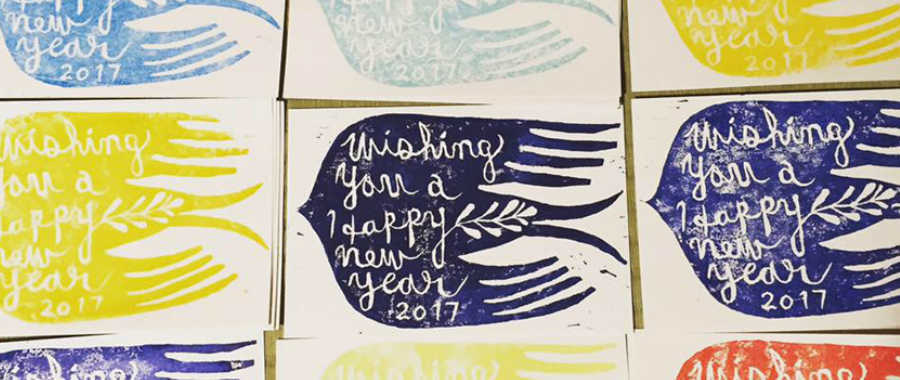 Happy
new
year
2017
Happy
new
year
2017
new
year
2017
Wishing
you a
Happy
new
year
2017
Wishing
you a
Happy
new
year
2017
Wishing
you a
Happy
new
year
2017
Wishing
Wishing
Wishing